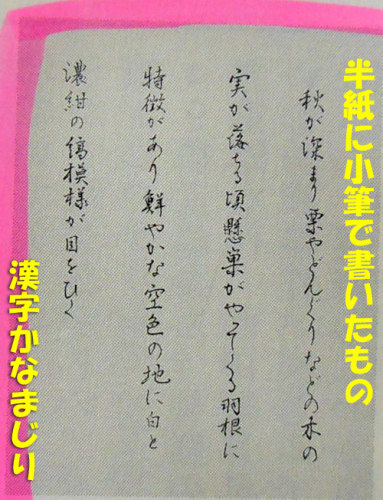 半紙に小筆で書いたもの
秋が深まり栗やどんぐりなどの木の
実が落ちる頃懸巣がやってくる羽根に
特徴があり鮮やかな空色の地に白と
濃紺の縞模様が目をひく
漢字かなまじり